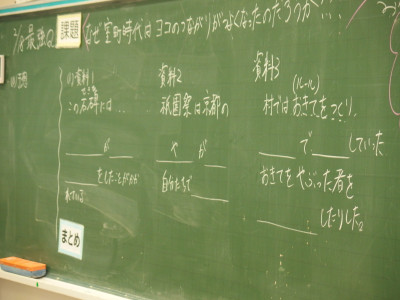 最強
課題
なぜ室町時代はヨコのつながりがよくなったのだろうか…
資料1
この石碑には…
が
をしたことがわか
資料2
祇園祭は京都の
や が
自分たちで
資料3
(ルール)
村ではおきてをつくり、
で していった
おきてをやぶった者を
したりした。
まとめ